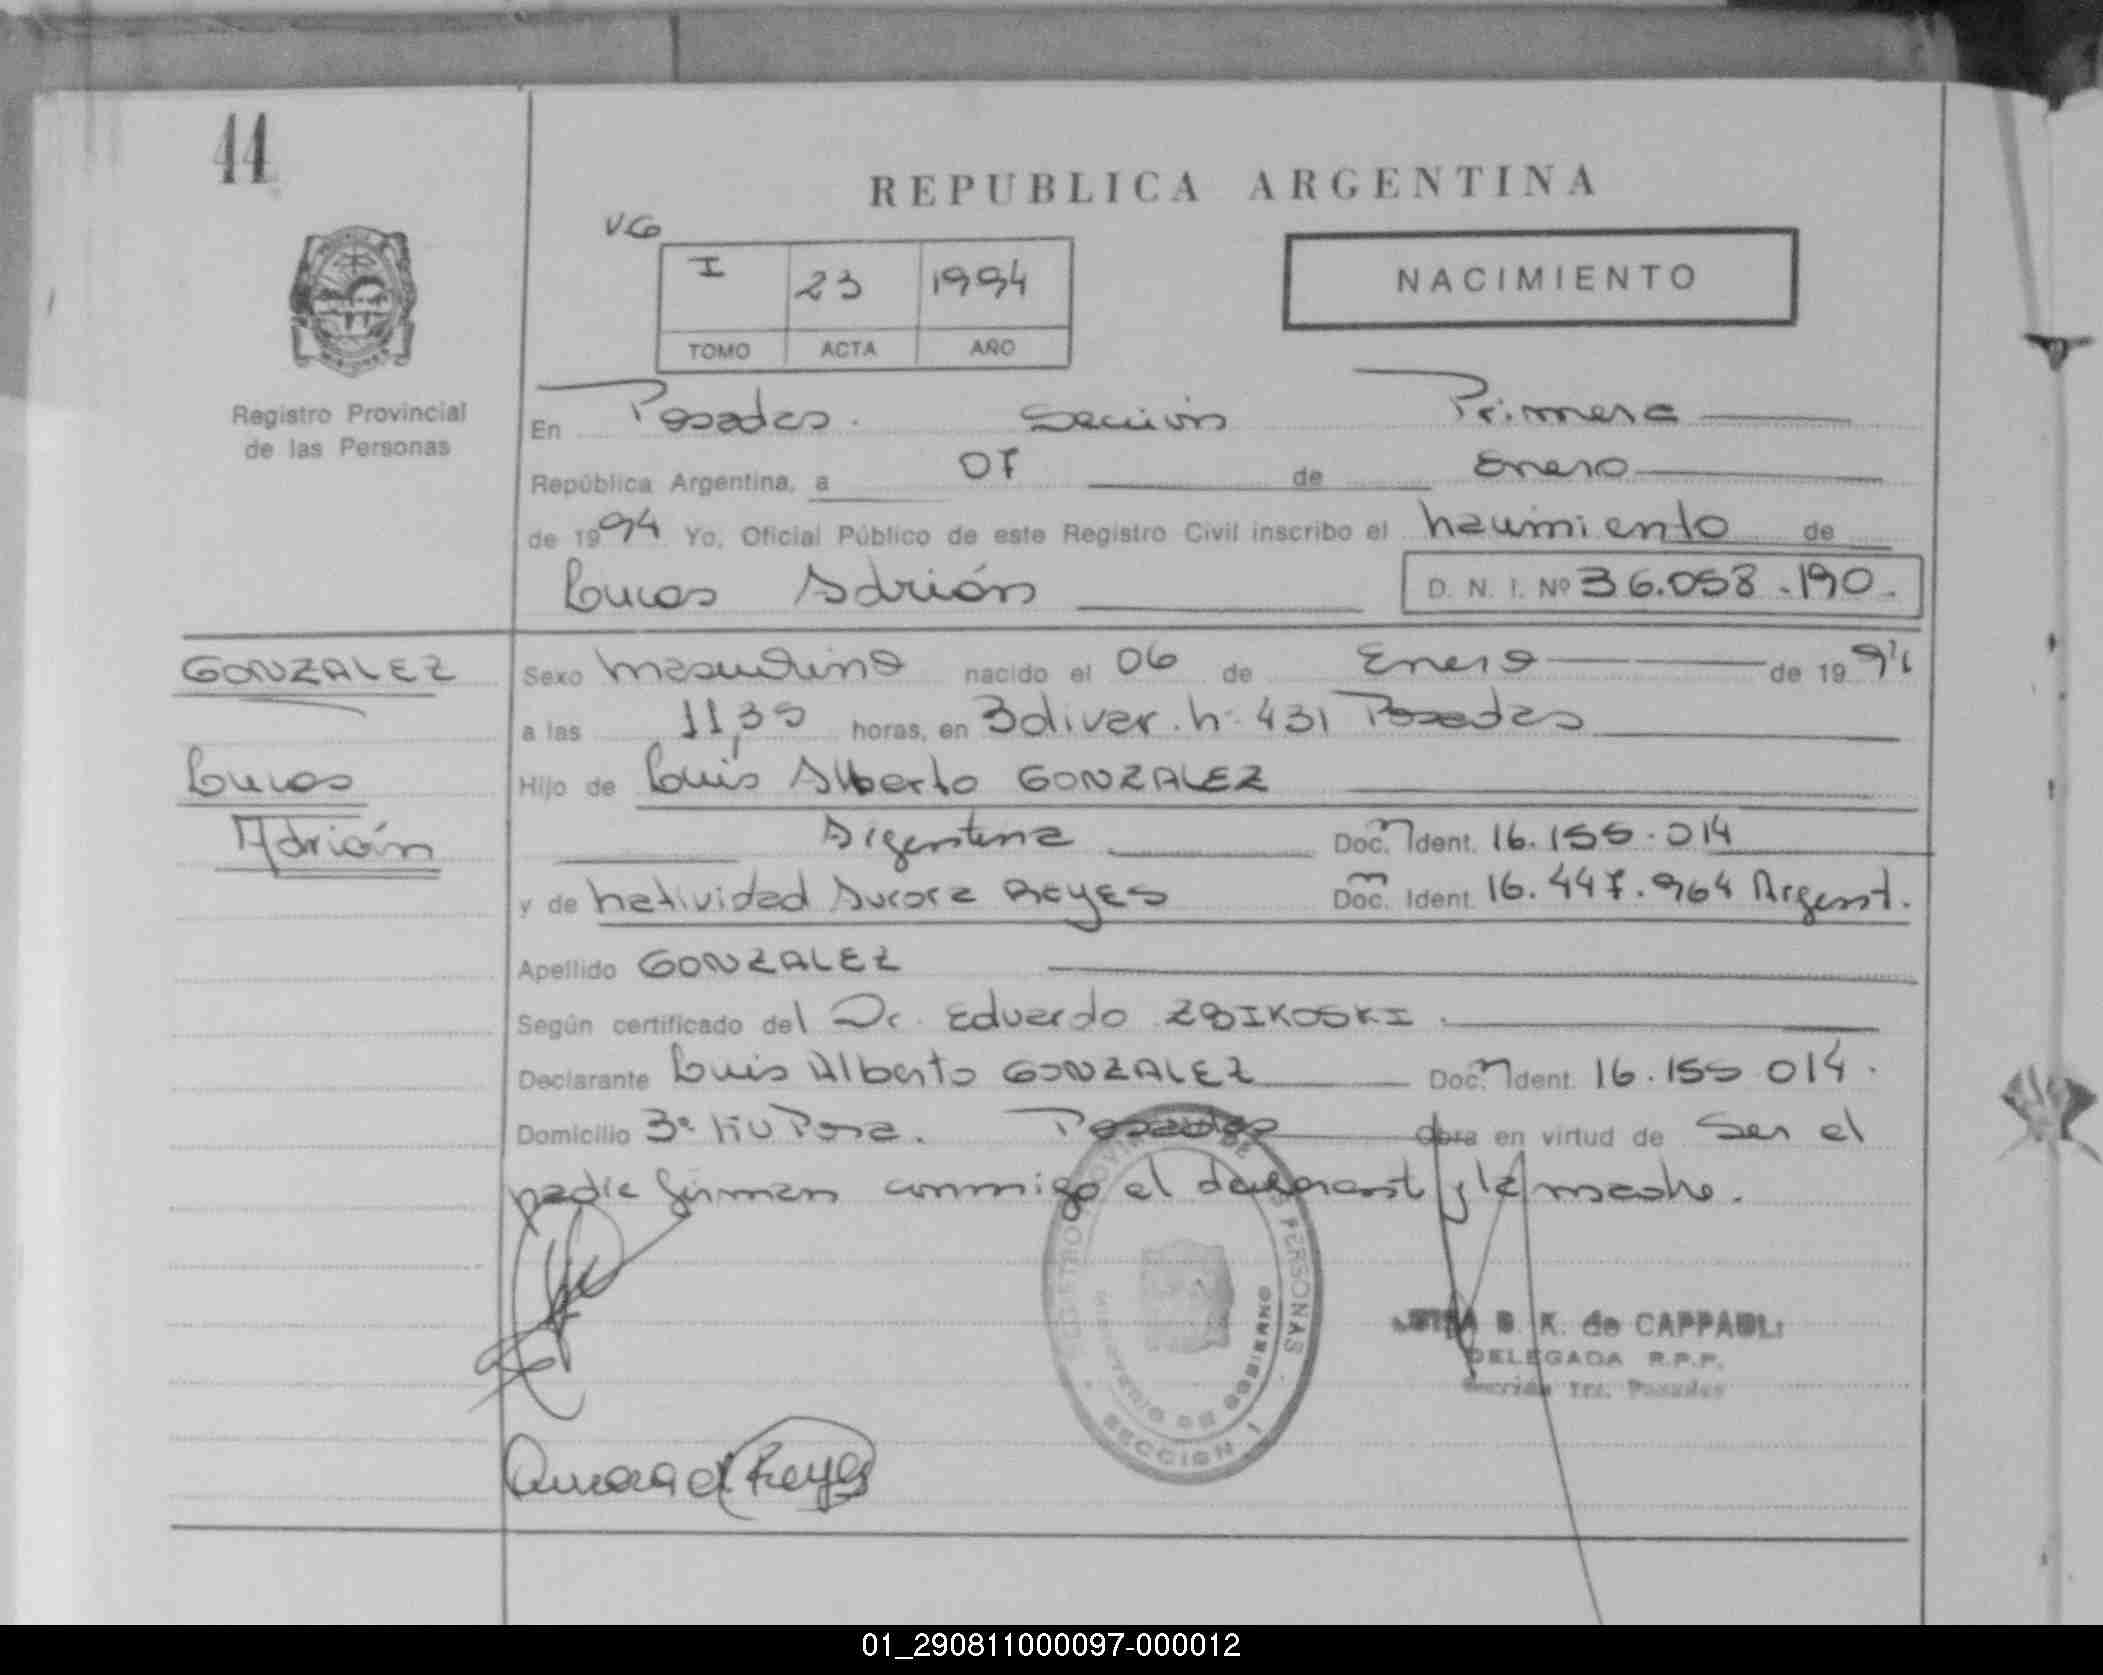 44
REPUBLICA ARGENTINA
VG
I 23 1994
TOMO ACTA AÑO
NACIMIENTO
Registro Provincial
de las Personas
En Posadas. Sección Primera
República Argentina, a 07 de Enero
de 1994 Yo, Oficial Público de este Registro Civil inscribo el nacimiento de
Lucas Adrián D. N. I. Nº 36.058.190.
GONZALEZ
Lucas
Adrián
Sexo Masculino nacido el 06 de Enero de 1994
a las 11,35 horas, en Bolivar. Nº 431 Posadas
Hijo de Luis Alberto GONZALEZ
Argentina Doc. Ident. 16.155.014
y de Natividad Aurora REYES Doc. Ident. 16.447.964 Argent.
Apellido GONZALEZ
Según certificado del Dr. Eduardo ZBIKOSKI.
Declarante Luis Alberto GONZALEZ Doc. Ident. 16.155.014.
Domicilio Posadas Obra en virtud de Ser el
padre firman conmigo el declarant y la madre.
REGISTRO PROVINCIAL DE LAS PERSONAS
MINISTERIO DE GOBIERNO
SECCION 1
B. K. de CAPPAULI
DELEGADA R.P.P.
Sección 1ra. Posadas
Aurora d Reyes
01_290811000097-000012